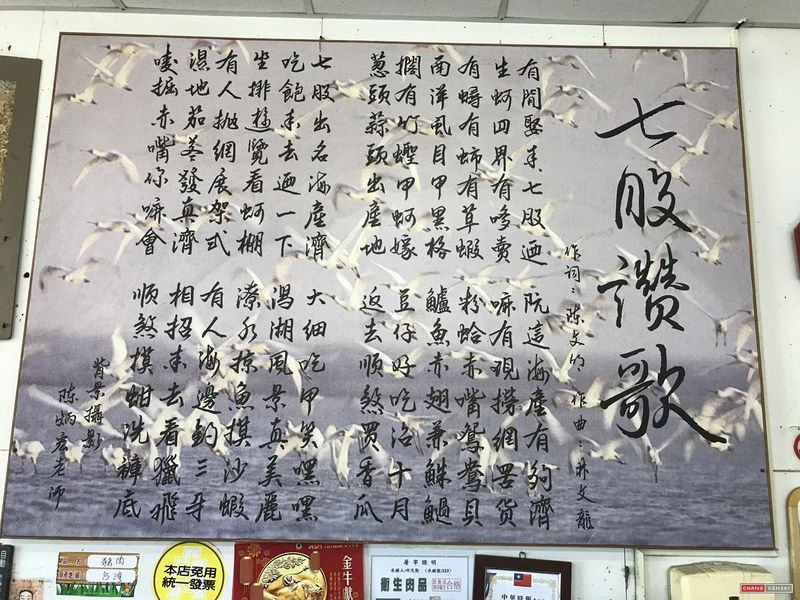 七股讚歌
作詞：陳文明 作曲：文龍
有閒娶來七股迺 阮這海產有夠濟
生蚵四界有嗲賣 嘛有現撈網罟貨
有蟳有蜅有草蝦 粉蛤赤嘴鴛鴦貝
南洋風目甲黑格 鱸魚赤翅兼鮢
擱有竹蟶甲蚵嫁 豆仔好吃治十月
蔥頭蒜頭出產地 返去順煞買香瓜
七股出名海產濟 大細吃甲笑嘿嘿
吃飽來去迺一下 潟湖風景真美麗
坐排遊覽看蚵棚 潦水掠魚摸沙蝦
有人拋網展架式 有人海邊釣三牙
濕地茄苳發真濟 相招來去看獵飛
嘜掘赤嘴你嘛會 順煞摸蚶洗褲底
背景攝影
陳炳宏老師
自動
豬肉
台灣
本店免用
統一發票
2021
金牛
屠宰證明
衛生肉品
合格
中華時報
CHANG KENSKI